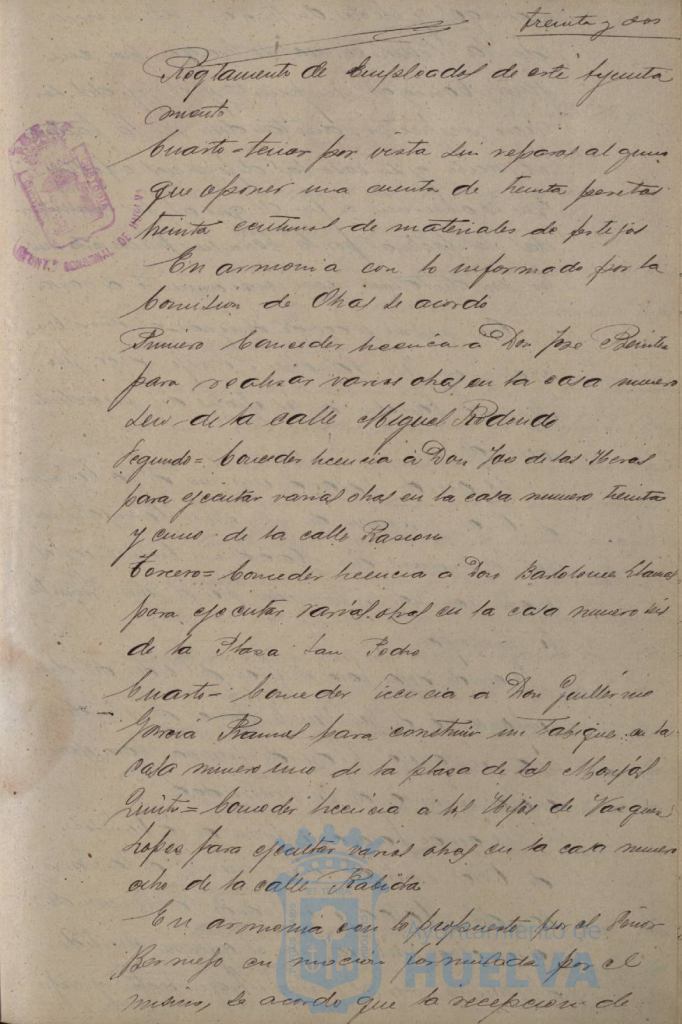 treinta y dos
Reglamento de Empleados de este Ayunta
miento
Cuarto = tener por vista sin reparos alguno
que oponer una cuenta de treinta pesetas
treinta centimos de materiales de festejos
En armonia con lo informado por la
Comision de Obras se acordo
Primero Conceder licencia á Don Jose
para realizar varias obras en la casa numero
seis de la calle Miguel Redondo
Segundo = Conceder licencia á Don de las Heras
para ejecutar varias obras en la casa numero treinta
y cinco de la calle Rascon
Tercero = Conceder licencia á Don Bartolome Llamas
para ejecutar varias obras en la casa numero seis
de la Plaza San Pedro
Cuarto = Conceder licencia á Don Guillermo
Garcia Ramos para construir un tabique en la
casa numero uno de la plaza de las Monjas
Quinto = Conceder licencia á los Hijos de Vazquez
Lopez para ejecutar varias obras en la casa numero
ocho de la calle Rabida
En armonia con lo propuesto por el Señor
Bermejo en mocion formulada por el
mismo, se acordo que la recepcion de
Ayuntamiento de
HUELVA